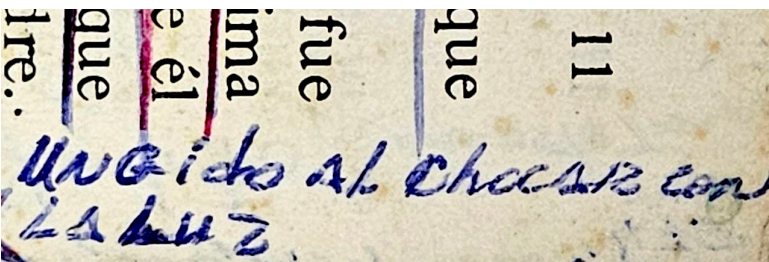 11
que
fue
ima
e él
que
dre.
UNGido Al ChocAR con
LA LUZ